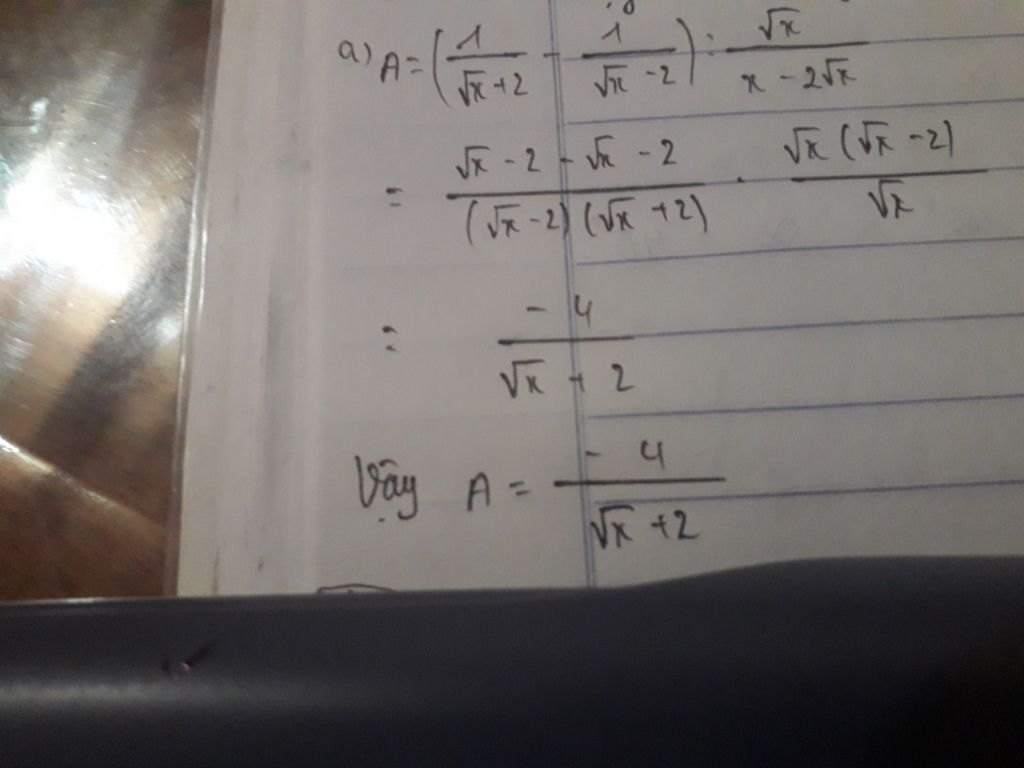 a) A = (1/(√x + 2) - 1/(√x - 2)) : √x/(x - 2√x)
= (√x - 2 - √x - 2)/((√x - 2)(√x + 2)) . √x(√x - 2)/√x
= -4/(√x + 2)
Vậy A = -4/(√x + 2)